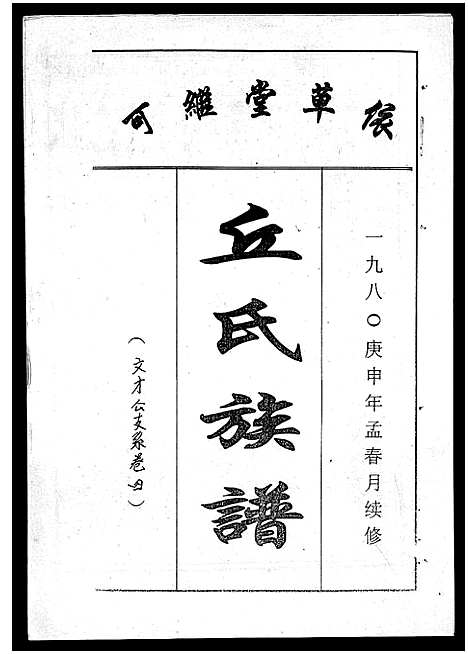 可繼堂草
一九八〇庚申年孟春月续修
丘氏族譜
（文才公支系卷四）